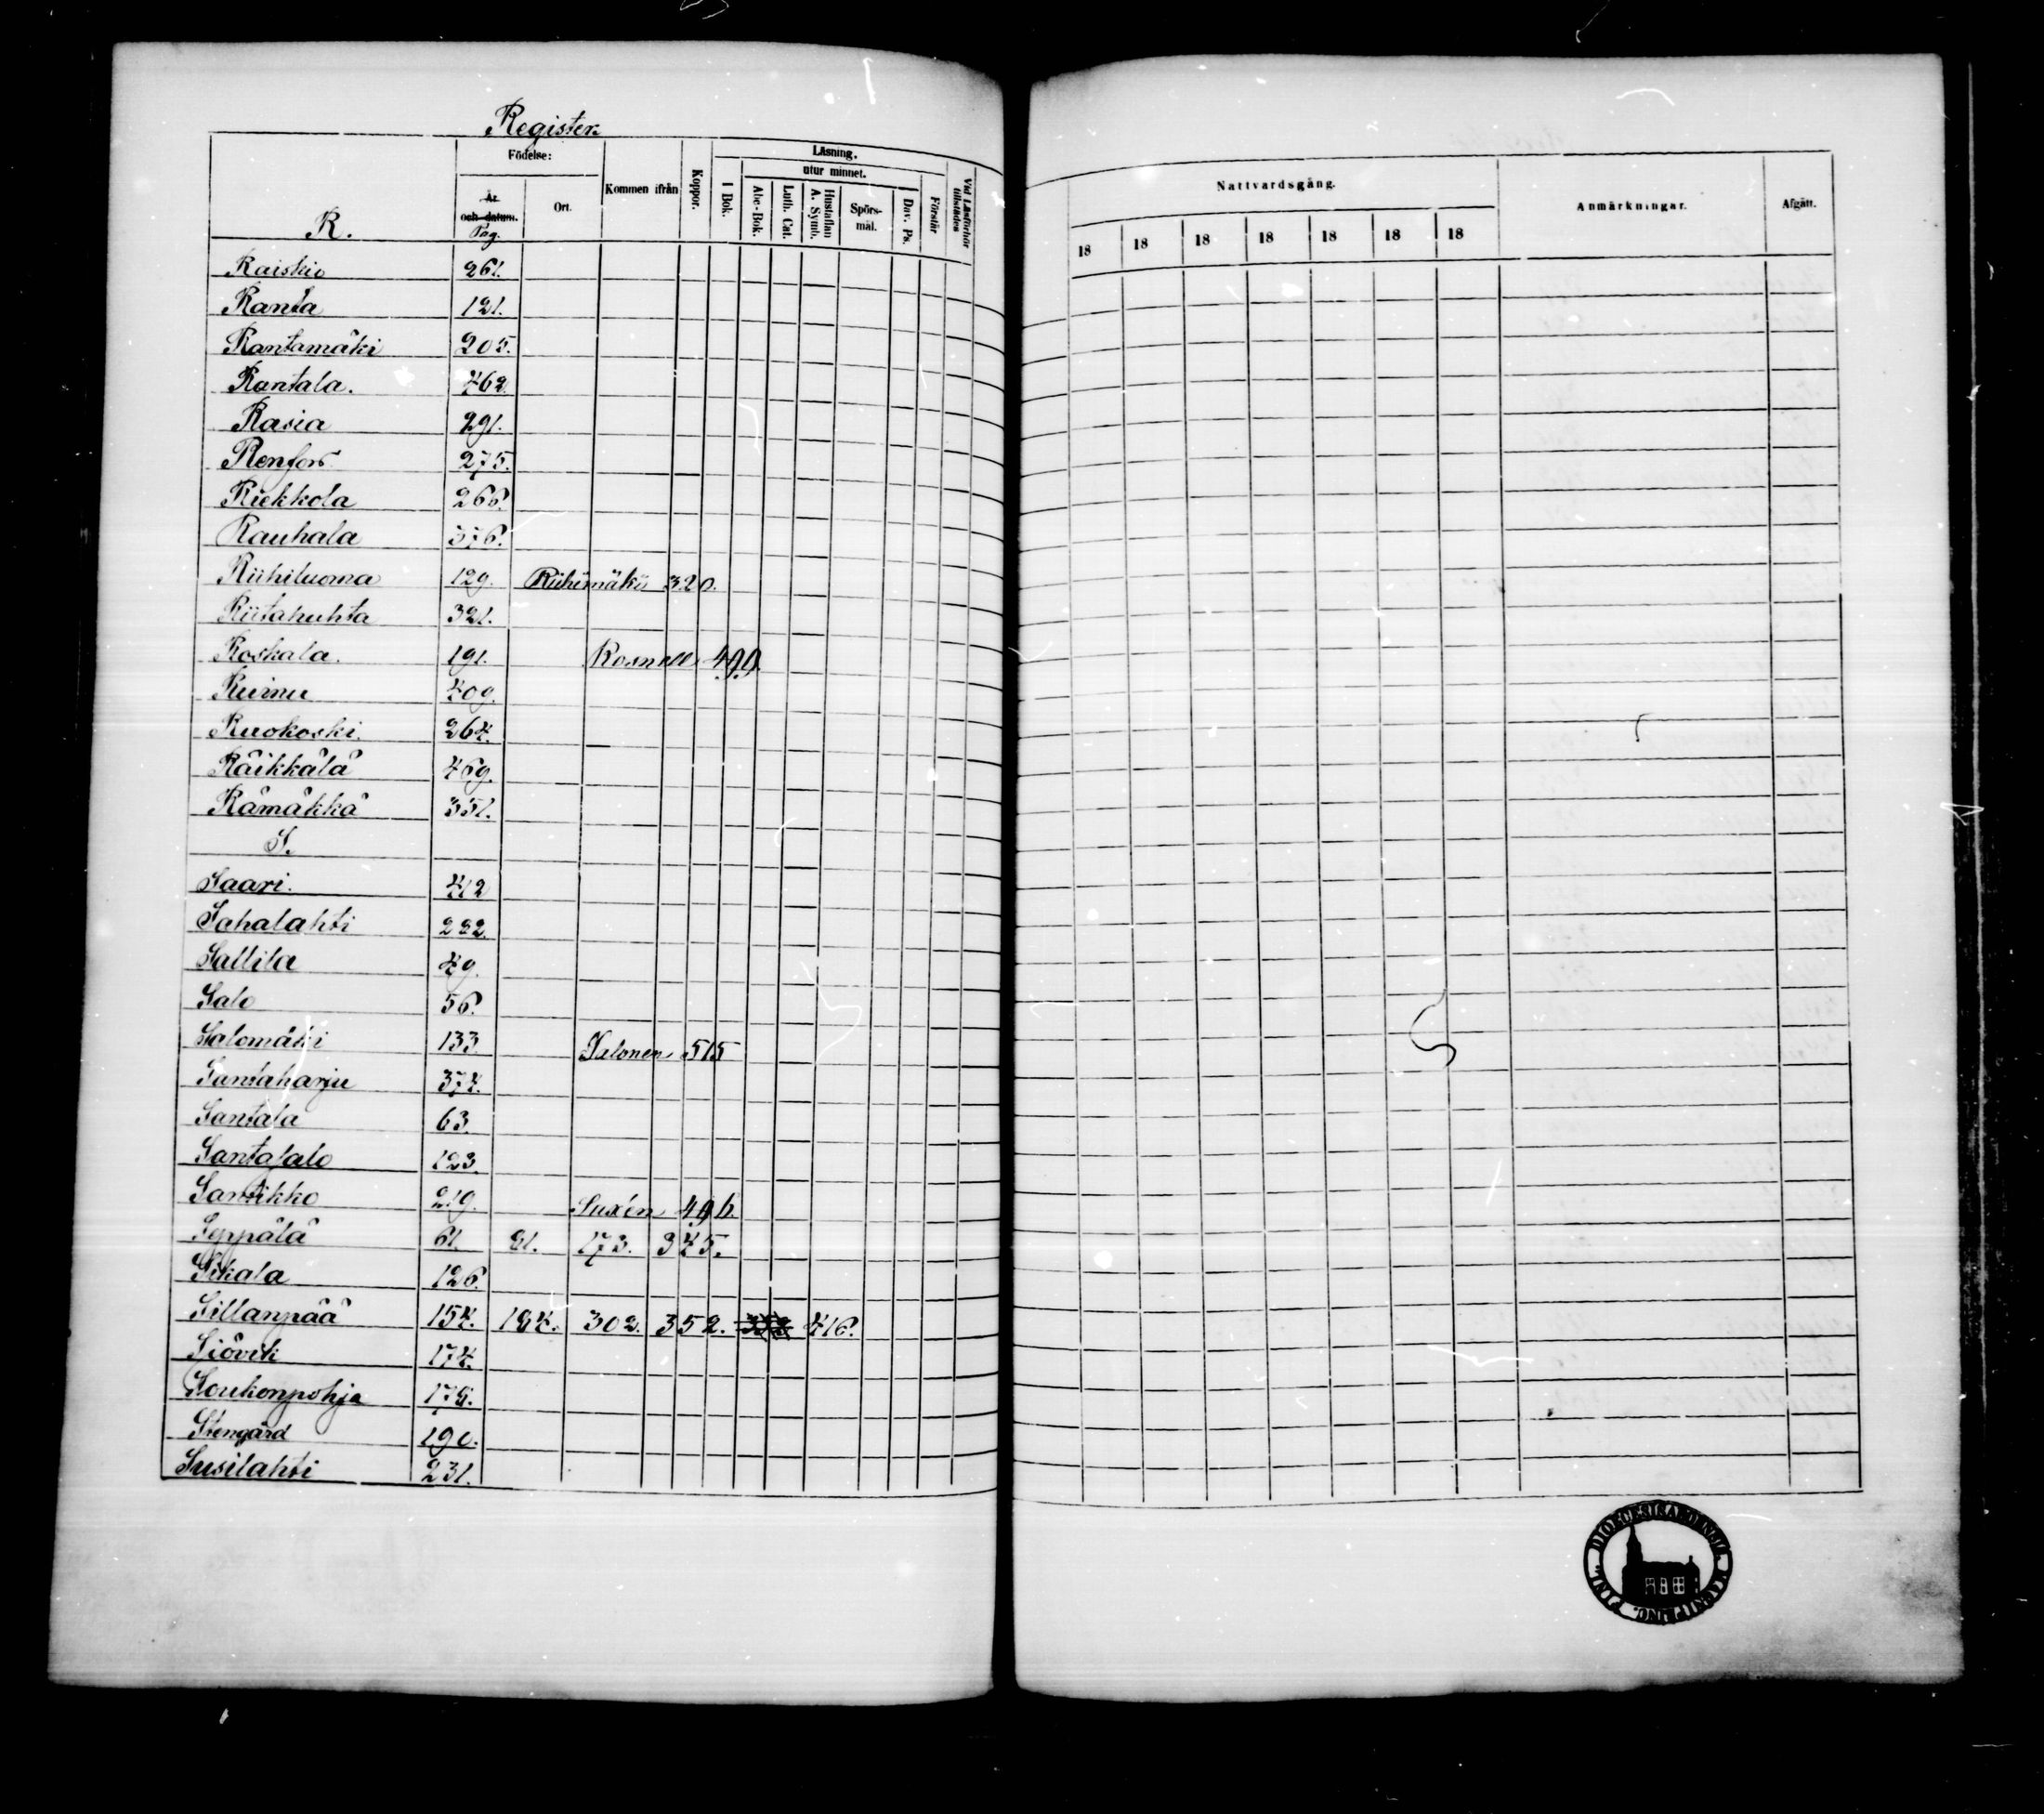 Register.
Födelse:
Kommen ifrån
Koppor.
Läsning.
utur minnet.
I Bok.
Abc-Bok.
Luth. Cat.
Hustaflan A. Symb.
Spörsmål.
Dav. Ps.
Förstår
Vid Läsförhör tillstädes
År och datum.
Pag.
Ort.
R.
Raiskio 261.
Ranta 121.
Rantamäki 205.
Rantala. 462.
Rasia 291.
Renfors 275.
Riekkola 266.
Rauhala 376.
Riihiluoma 129. Riihimäki 320.
Riitahuhta 321.
Roskala. 191. Rosnell 499.
Ruimu 409.
Ruokoski. 264.
Räikkälä 469.
Rämäkkä 351.
S.
Saari. 412
Sahalahti 232.
Sallila 49.
Salo 56.
Salomäki 133. Salonen 515
Santaharju 374.
Santala 63.
Santasalo 123.
Santikko 219. Suxén 496.
Seppälä 61. 81. 173. 345.
Sikala 126.
Sillanpää 154. 184. 302. 352. 416.
Siövik 174.
Soukonpohja 178.
Stengård 190.
Susilahti 231.
Nattvardsgång.
Anmärkningar.
Afgått.
18 18 18 18 18 18 18